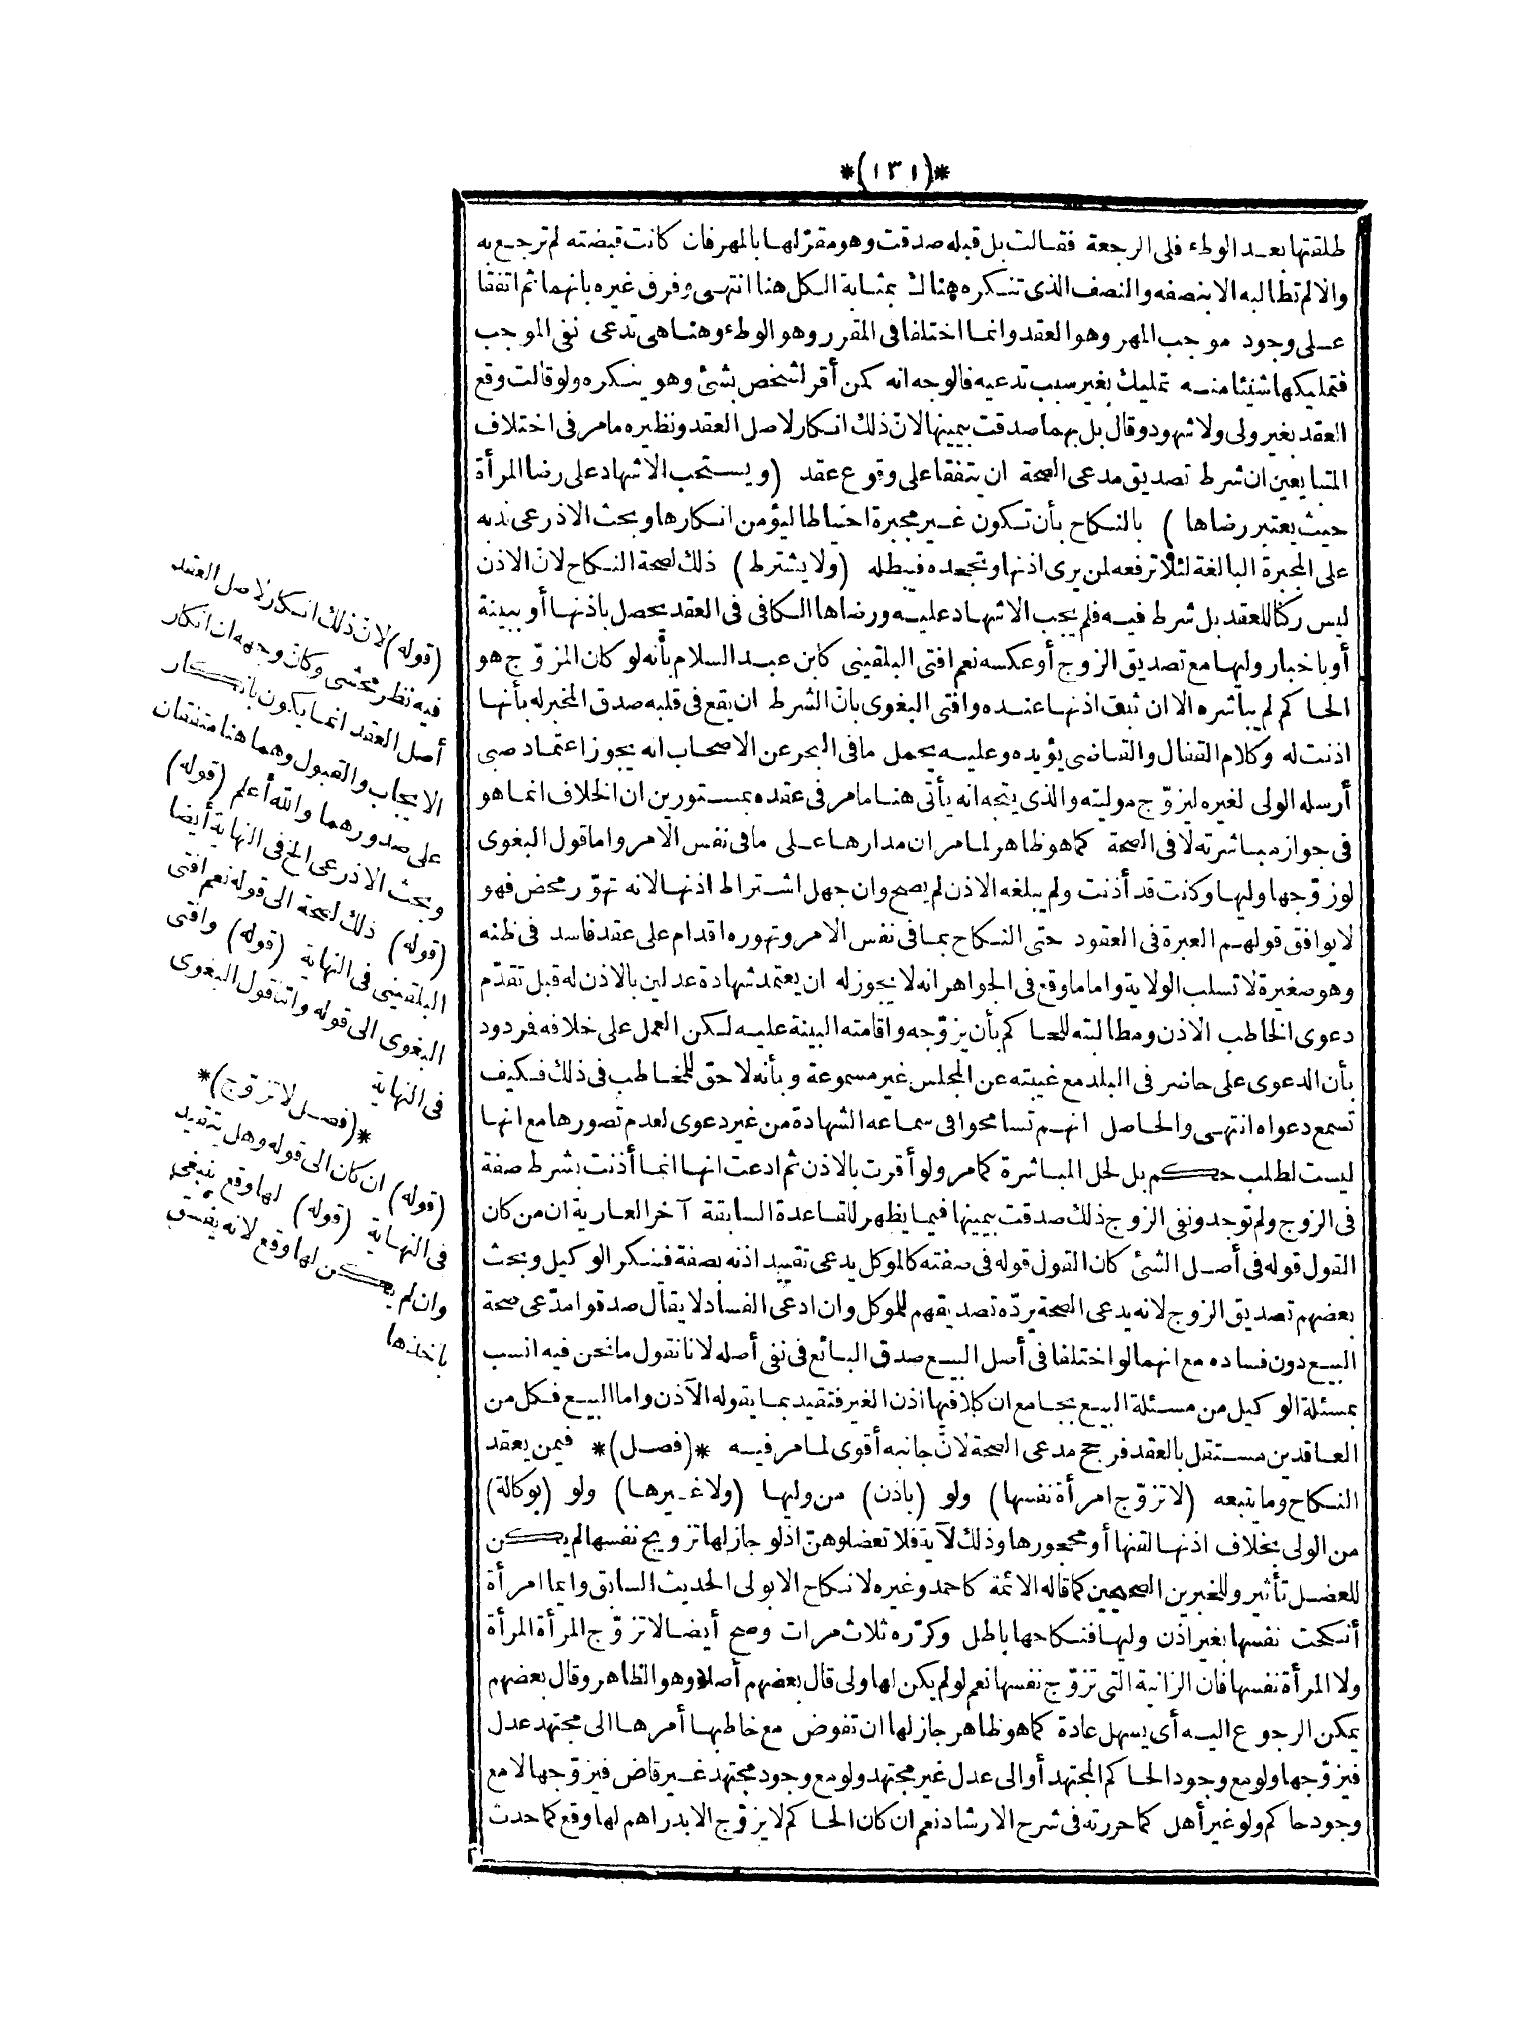 *(١٣١)*
طلقتها بعد الوطء فلى الرجعة فقالت بل قبله صدقت وهو مقرّ لها بالمهر فان كانت قبضته لم ترجع به
والا لم تطالبه الا بنصفه والنصف الذى تنكره هناك بمثابة الكل هنا انتهى وفرق غيره بانهما ثم اتفقا
على وجود موجب المهر وهو العقد وانما اختلفا فى المقرر وهو الوطء وهنا هى تدعى نفى الموجب
فتمليكها شيئا منه تمليك بغير سبب تدعيه فالوجه انه كمن أقر لشخص بشئ وهو ينكره ولو قالت وقع
العقد بغير ولى ولا شهود وقال بل بهما صدقت بيمينها لانّ ذلك انكار لاصل العقد ونظيره مامر فى اختلاف
المتبايعين ان شرط تصديق مدعى الصحة ان يتفقا على وقوع عقد (ويستحب الاشهاد على رضا المرأة
حيث يعتبر رضاها) بالنكاح بأن تكون غير مجبرة احتياطا ليؤمن انكارها وبحث الاذرعى ندبه
على المجبرة البالغة لئلا ترفعه لمن يرى اذنها وتجحده فيبطله (ولا يشترط) ذلك لصحة النكاح لان الاذن
ليس ركنا للعقد بل شرط فيه فلم يجب الاشهاد عليه ورضاها الكافى فى العقد يحصل باذنها أو ببينة
أو باخبار وليها مع تصديق الزوج أو عكسه نعم افتى البلقينى كابن عبد السلام بأنه لو كان المزوّج هو
الحاكم لم يباشره الا ان ثبت اذنها عنده وافتى البغوى بانّ الشرط ان يقع فى قلبه صدق المخبر له بأنها
اذنت له وكلام القفال والقاضى يؤيده وعليه يحمل مافى البحر عن الاصحاب انه يجوز اعتماد صبى
أرسله الولى لغيره ليزوّج موليته والذى يتجه انه يأتى هنا مامر فى عقده بمستورين ان الخلاف انما هو
فى جواز مباشرته لا فى الصحة كما هو ظاهر لمامر ان مدارها على مافى نفس الامر واما قول البغوى
لو زوّجها وليها وكنت قد أذنت ولم يبلغه الاذن لم يصح وان جهل اشتراط اذنها لانه تهوّر محض فهو
لا يوافق قولهم العبرة فى العقود حتى النكاح بمافى نفس الامر وتهوره اقدام على عقد فاسد فى ظنه
وهو صغيرة لا تسلب الولاية واما ما وقع فى الجواهر انه لا يجوز له ان يعتمد شهادة عدلين بالاذن له قبل تقدّم
دعوى الخاطب الاذن ومطالبته للحاكم بأن يزوّجه واقامته البينة عليه لكن العمل على خلافه فردود
بأن الدعوى على حاضر فى البلد مع غيبته عن المجلس غير مسموعة وبأنه لا حق للمخاطب فى ذلك فكيف
تسمع دعواه انتهى والحاصل انهم تسامحوا فى سماعه الشهادة من غير دعوى لعدم تصورها مع انها
ليست لطلب حكم بل لحل المباشرة كمامر ولو أقرت بالاذن ثم ادعت انها انما أذنت بشرط صفة
فى الزوج ولم توجد ونفى الزوج ذلك صدقت بيمينها فيما يظهر للقاعدة السابقة آخر العارية ان من كان
القول قوله فى أصل الشئ كان القول قوله فى صفته كالموكل يدعى تقييد اذنه بصفة فينكر الوكيل وبحث
بعضهم تصديق الزوج لانه يدعى الصحة يردّه تصديقهم للموكل وان ادعى الفساد لا يقال صدقوا مدّعى صحة
البيع دون فساده مع انهما لو اختلفا فى أصل البيع صدق البائع فى نفى أصله لانا نقول مانحن فيه انسب
بمسئلة الوكيل من مسئلة البيع بجامع ان كلا فيها اذن الغير فتقيد بما يقوله الآذن واما البيع فكل من
العاقدين مستقل بالعقد فرجح مدعى الصحة لانّ جانبه أقوى لمامر فيه *(فصل)* فيمن يعقد
النكاح وما يتبعه (لا تزوّج امرأة نفسها) ولو (باذن) من وليها (ولا غيرها) ولو (بوكالة)
من الولى بخلاف اذنها لقنها أو محجورها وذلك لآية فلا تعضلوهنّ اذ لو جاز لها تزويج نفسها لم يكن
للعضل تأثير وللخبرين الصحيحين كما قاله الائمة كاحمد وغيره لا نكاح الا بولى الحديث السابق وايما امرأة
أنكحت نفسها بغير اذن وليها فنكاحها باطل وكرّره ثلاث مرات وصح أيضا لا تزوّج المرأة المرأة
ولا المرأة نفسها فان الزانية التى تزوّج نفسها نعم لو لم يكن لها ولى قال بعضهم أصلا وهو الظاهر وقال بعضهم
يمكن الرجوع اليه أى يسهل عادة كما هو ظاهر جاز لها ان تفوض مع خاطبها أمرها الى مجتهد عدل
فيزوّجها ولو مع وجود الحاكم المجتهد أو الى عدل غير مجتهد ولو مع وجود مجتهد غير قاض فيزوّجها لا مع
وجود حاكم ولو غير أهل كما حررته فى شرح الارشاد نعم ان كان الحاكم لا يزوّج الا بدراهم لها وقع كما حدث
(قوله) لانّ ذلك انكار لاصل العقد
فيه نظر محشى وكان وجهه ان انكار
أصل العقد انما يكون بانكار
الايجاب والقبول وهما هنا متفقان
على صدورهما والله أعلم (قوله)
وبحث الاذرعى الخ فى النهاية أيضا
(قوله) ذلك لصحة الى قوله نعم افتى
البلقينى فى النهاية (قوله) وافتى
البغوى الى قوله واما قول البغوى
فى النهاية
*(فصل لا تزوّج)*
(قوله) ان كان الى قوله وهل يتقيد
فى النهاية (قوله) لها وقع ينبغى
وان لم يكن لها وقع لانه يفسق
باخذها